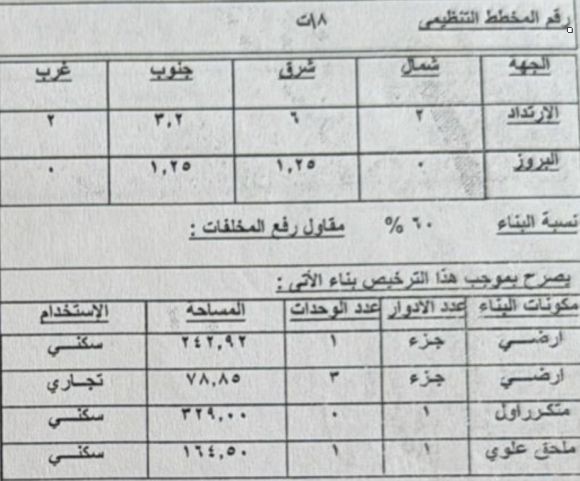 رقم المخطط التنظيمى ١٨\ت
الجهه شمال شرق جنوب غرب
الإرتداد ٢ ٦ ٣,٢ ٢
البروز ٠ ١,٢٥ ١,٢٥ ٠
نسبة البناء ٦٠ % مقاول رفع المخلفات :
يصرح بموجب هذا الترخيص بناء الأتى :
مكونات البناء عدد الادوار عدد الوحدات المساحه الإستخدام
ارضـــي جزء ١ ٢٤٢,٩٢ سكنــي
ارضـــي جزء ٣ ٧٨,٨٥ تجـاري
متكرراول ١ ٠ ٣٢٩,٠٠ سكنــي
ملحق علوي ١ ١ ١٦٤,٥٠ سكنــي